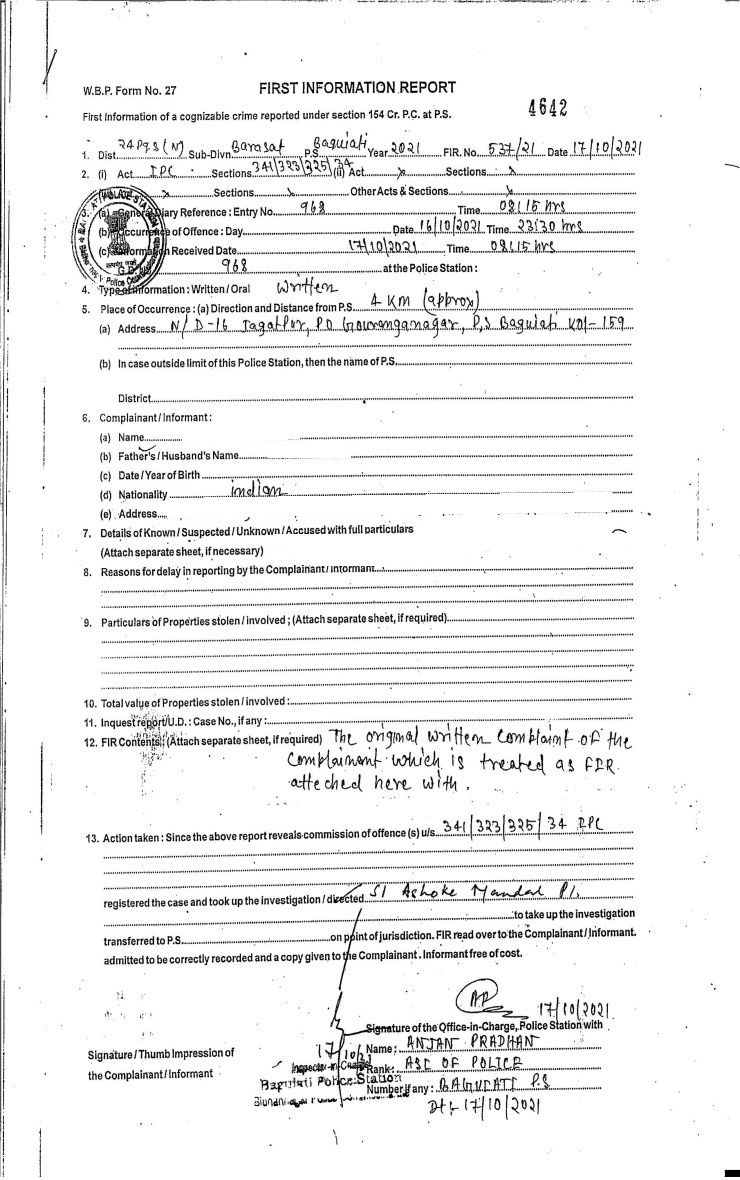 W.B.P. Form No. 27 FIRST INFORMATION REPORT
4642
First Information of a cognizable crime reported under section 154 Cr. P.C. at P.S.
1. Dist. 24 Pgs (N) Sub-Divn. Barasat P.S. Baguiati Year 2021 FIR. No. 537/21 Date 17/10/2021
2. (i) Act IPC Sections 341/323/325/34 (ii) Act x Sections x
x Sections x Other Acts & Sections x
3. (a) General Diary Reference : Entry No. 968 Time 08:15 hrs
(b) Occurrence of Offence : Day Date 16/10/2021 Time 23:30 hrs
(c) Information Received Date 17/10/2021 Time 08:15 hrs
968 at the Police Station :
4. Type of Information : Written / Oral Written
5. Place of Occurrence : (a) Direction and Distance from P.S. 4 KM (approx)
(a) Address N/D-16 Jagatpur, PO Gouranganagar, P.S Baguiati Kol-159
(b) In case outside limit of this Police Station, then the name of P.S.
District
6. Complainant / Informant :
(a) Name
(b) Father's / Husband's Name
(c) Date / Year of Birth
(d) Nationality indian
(e) Address
7. Details of Known / Suspected / Unknown / Accused with full particulars
(Attach separate sheet, if necessary)
8. Reasons for delay in reporting by the Complainant / Informant
9. Particulars of Properties stolen / involved ; (Attach separate sheet, if required)
10. Total value of Properties stolen / involved :
11. Inquest report/U.D. : Case No., if any :
12. FIR Contents : (Attach separate sheet, if required) The original written complaint of the
complainent which is treated as FIR
atteched here with.
13. Action taken : Since the above report reveals commission of offence (s) u/s 341/323/325/34 IPC
registered the case and took up the investigation / directed SI Ashoke Mandal
to take up the investigation
transferred to P.S. on point of jurisdiction. FIR read over to the Complainant / Informant.
admitted to be correctly recorded and a copy given to the Complainant . Informant free of cost.
17/10/2021
Signature of the Office-in-Charge, Police Station with
Signature / Thumb Impression of
the Complainant / Informant
17/10/2
Inspector-in-Charge
Baguiati Police Station
Name : ANJAN PRADHAN
Rank : ASI OF POLICE
Number if any : BAGUIATI P.S
Dt- 17/10/2021